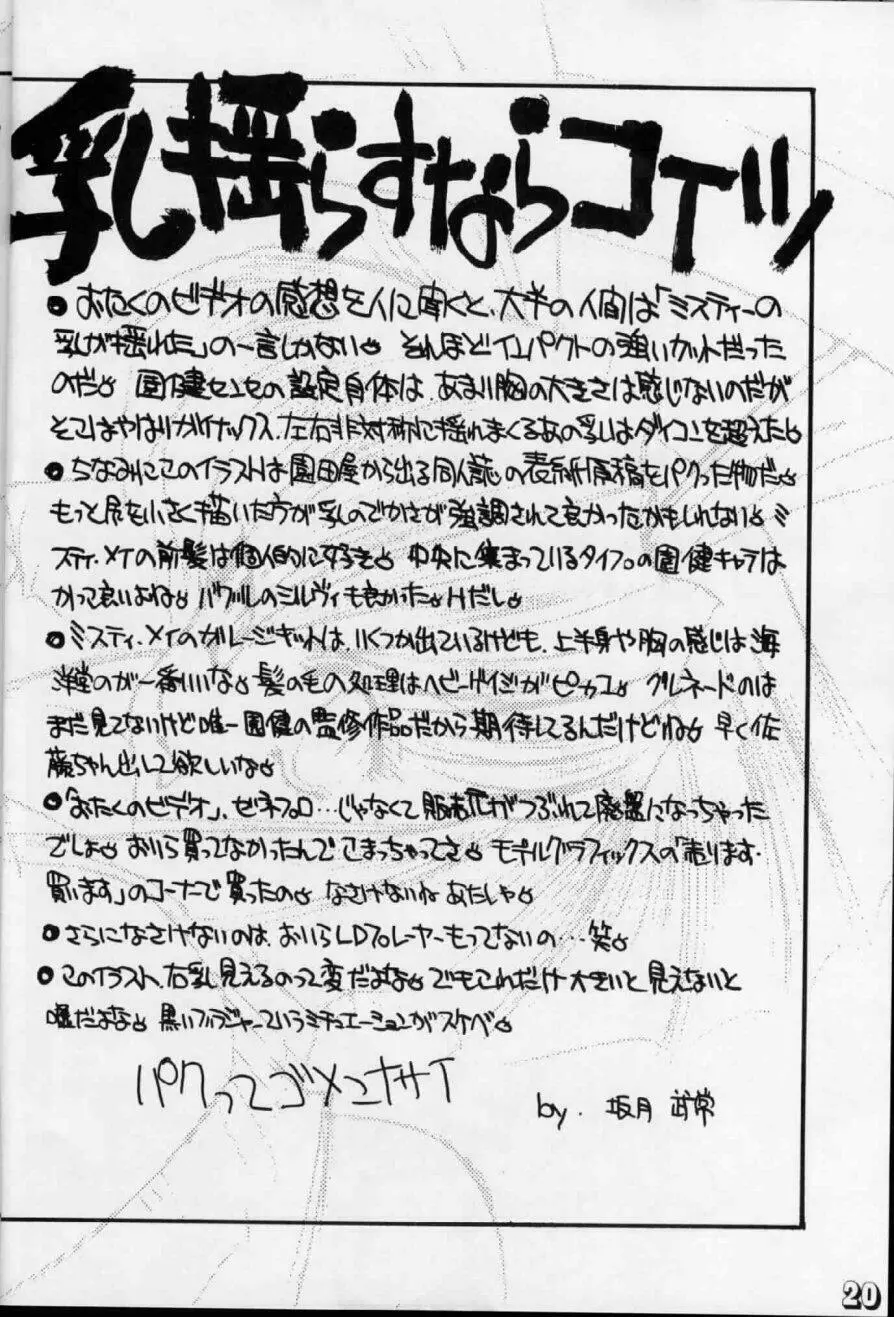 乳揺らすならコイツ
●おたくのビデオの感想を人に聞くと、大半の人間は「ミスティーの
乳が揺れた」の一言しかない。 それほどインパクトの強いカットだった
のだ。 園健センセの設定自体は、あまり胸の大きさは感じないのだが
そこはやはりガイナックス、左右非対称に揺れまくるあの乳はダイコンを超えた。
●ちなみにこのイラストは園田屋から出る同人誌の表紙原稿をパクった物だ。
もっと尻を小さく描いた方が乳のでかさが強調されて良かったかもしれない。ミ
スティ・メイの前髪は個人的に好き。 中央に集まっているタイプの園健キャラは
かって良いよね。 バウバルのシルヴィも良かった。Hだし。
●ミスティ・メイのガレージキットは、いくつか出ているけども、上半身や胸の感じは海
洋堂のが一番いいな。髪の毛の処理はヘビーゲイジがピカコ。 グルネードのは
まだ見てないけど唯一園健の監修作品だから期待してるんだけどね。 早く佐
藤ちゃん出して欲しいな。
●「おたくのビデオ」、ゼネプロ…じゃなくて販売元がつぶれて廃盤になっちゃった
でしょ。 おいら買ってなかったんでこまっちゃってさ。 モデルグラフィックスの「売ります・
買います」のコーナーで買ったの。 なさけないね あたしゃ。
●さらになさけないのは、おいらLDプレーヤーもってないの…笑。
●このイラスト、右乳見えるのって変だよな。でもこれだけ大きいと見えないと
嘘だよな。 黒いブラジャーっていうシチュエーションがスケベ。
パクってゴメンナサイ
by. 坂月 武常
20